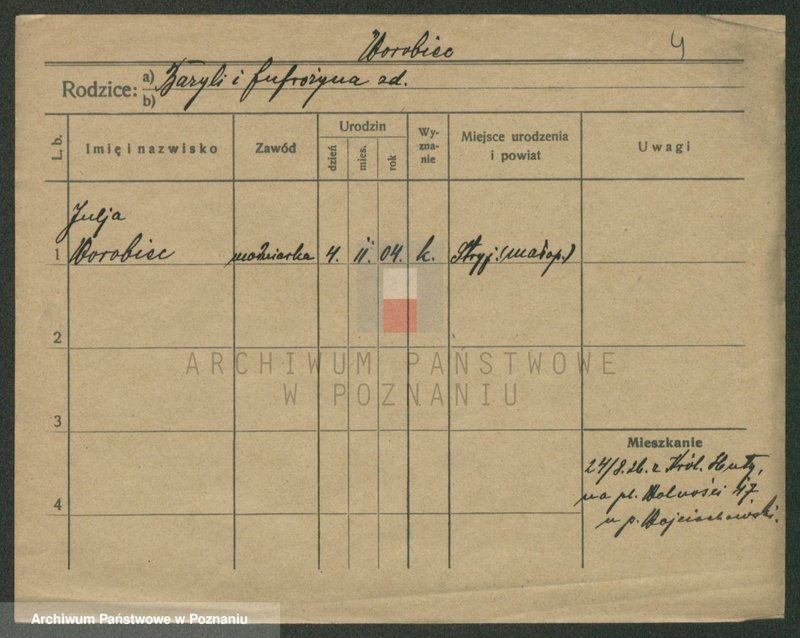 Worobiec 4
Rodzice: a) Bazyli i Eufrozyna zd.
b)
L. b.
Imię i nazwisko
Zawód
Urodzin
dzień
mies.
rok
Wy-
zna-
nie
Miejsce urodzenia
i powiat
Uwagi
Julja
1 Worobiec 4. II. 04. k. Stryj. (małop.)
2
ARCHIWUM PAŃSTWOWE
W POZNANIU
3
Mieszkanie
24/8.26. z Król. Huty,
4
na pl. Wolności 17
u p. Wojciechowski.
Archiwum Państwowe w Poznaniu